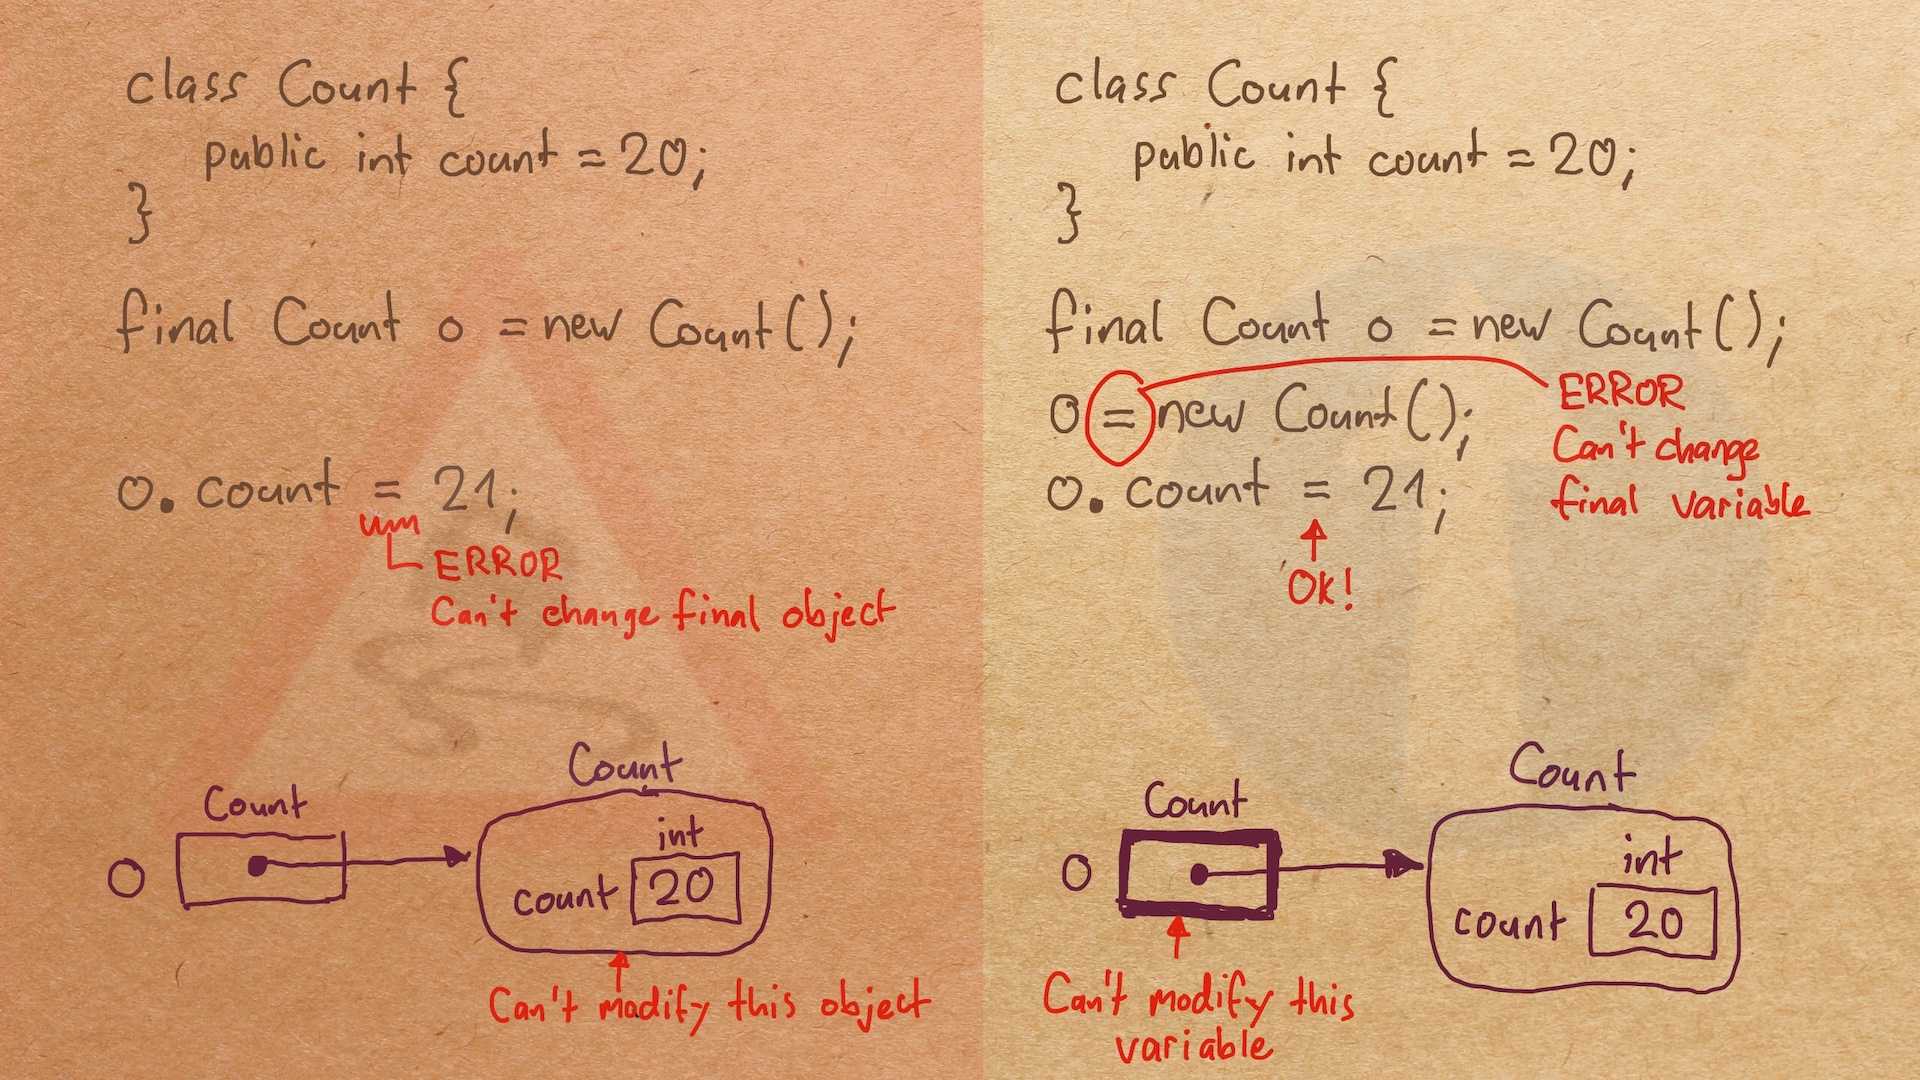 class Count {
public int count = 20;
}
final Count o = new Count();
o.count = 21;
ERROR
Can't change final object
Count
Count
o
int
count 20
Can't modify this object
class Count {
public int count = 20;
}
final Count o = new Count();
o = new Count();
o.count = 21;
ERROR
Can't change
final variable
OK!
Count
Count
o
int
count 20
Can't modify this
variable